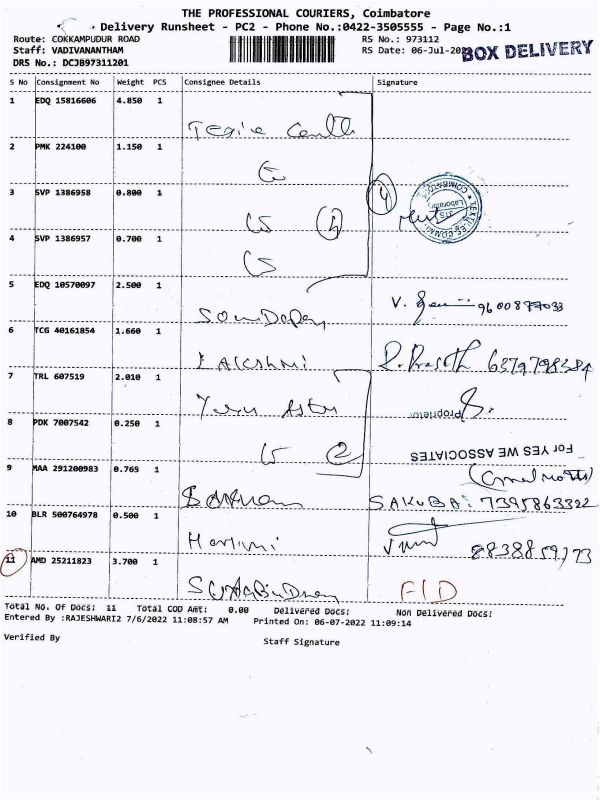 THE PROFESSIONAL COURIERS, Coimbatore
Delivery Runsheet - PC2 - Phone No.:0422-3505555 - Page No.:1
Route: COKKAMPUDUR ROAD
RS No.: 973112
Staff: VADIVANANTHAM
RS Date: 06-Jul-2022
BOX DELIVERY
DRS No.: DCJB97311201
S No Consignment No Weight PCS Consignee Details Signature
1 EDQ 15816606 4.850 1
2 PMK 224100 1.150 1
3 SVP 1386958 0.800 1
4 SVP 1386957 0.700 1
4
5 EDQ 10570097 2.500 1
V. 9600877033
6 TCG 40161854 1.660 1
Lakshmi 6379798384
7 TRL 607519 2.010 1
Proprietor
8 PDK 7007542 0.250 1
2
For YES WE ASSOCIATES
9 MAA 291200983 0.765 1
SAKUBAi 7395863322
10 BLR 500764978 0.500 1
Harini
11 AMD 25211823 3.700 1
Total No. Of Docs: 11 Total COD Amt: 0.00 Delivered Docs: Non Delivered Docs:
Entered By :RAJESHWARI2 7/6/2022 11:08:57 AM Printed On: 06-07-2022 11:09:14
Verified By Staff Signature